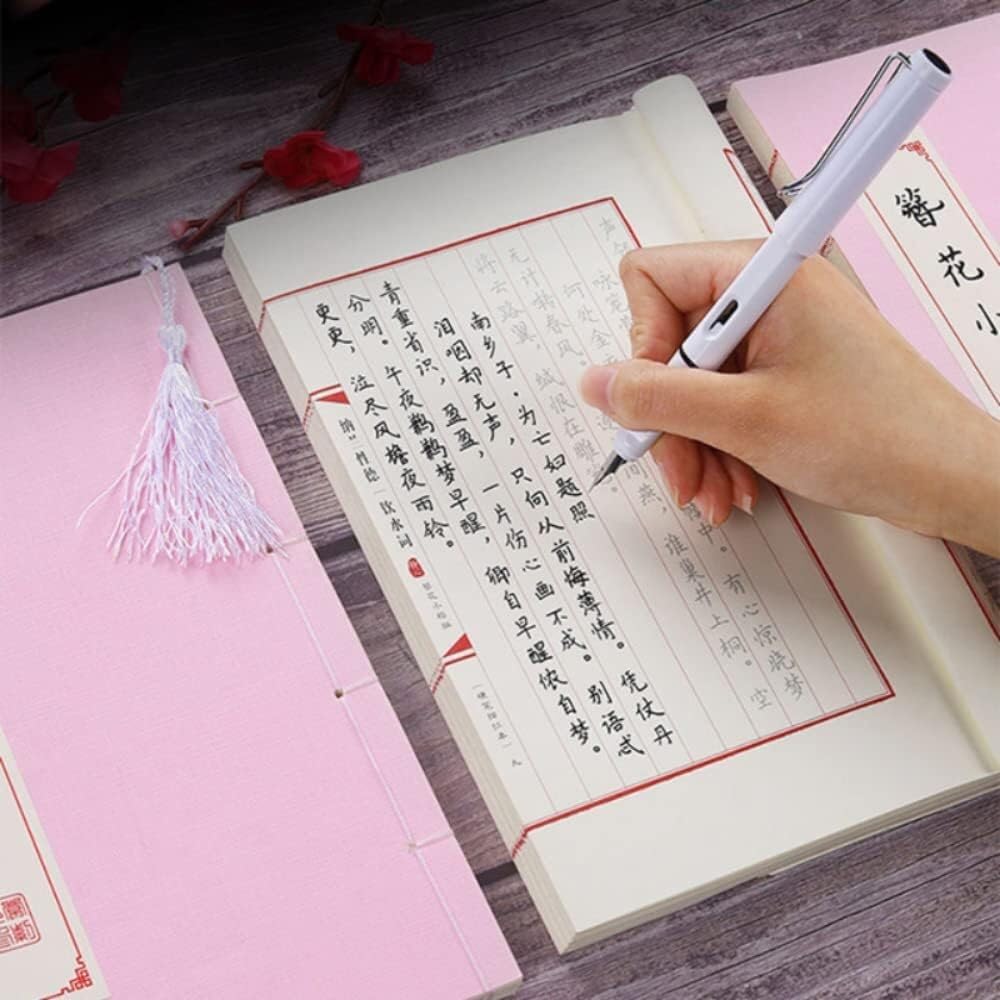 簪花小
声
咏笼
何处金 中。有心惊晓梦
无计啭春风， 间燕，谁巢井上桐。空
将云路翼，缄恨在雕
南乡子·为亡妇题照
泪咽却无声，只向从前悔薄情。凭仗丹
青重省识，盈盈，一片伤心画不成。别语忒
分明。午夜鹣鹣梦早醒，卿自早醒侬自梦。
更更，泣尽风檐夜雨铃。
纳兰性德｜饮水词
簪花小楷版
（硬笔描红本）九